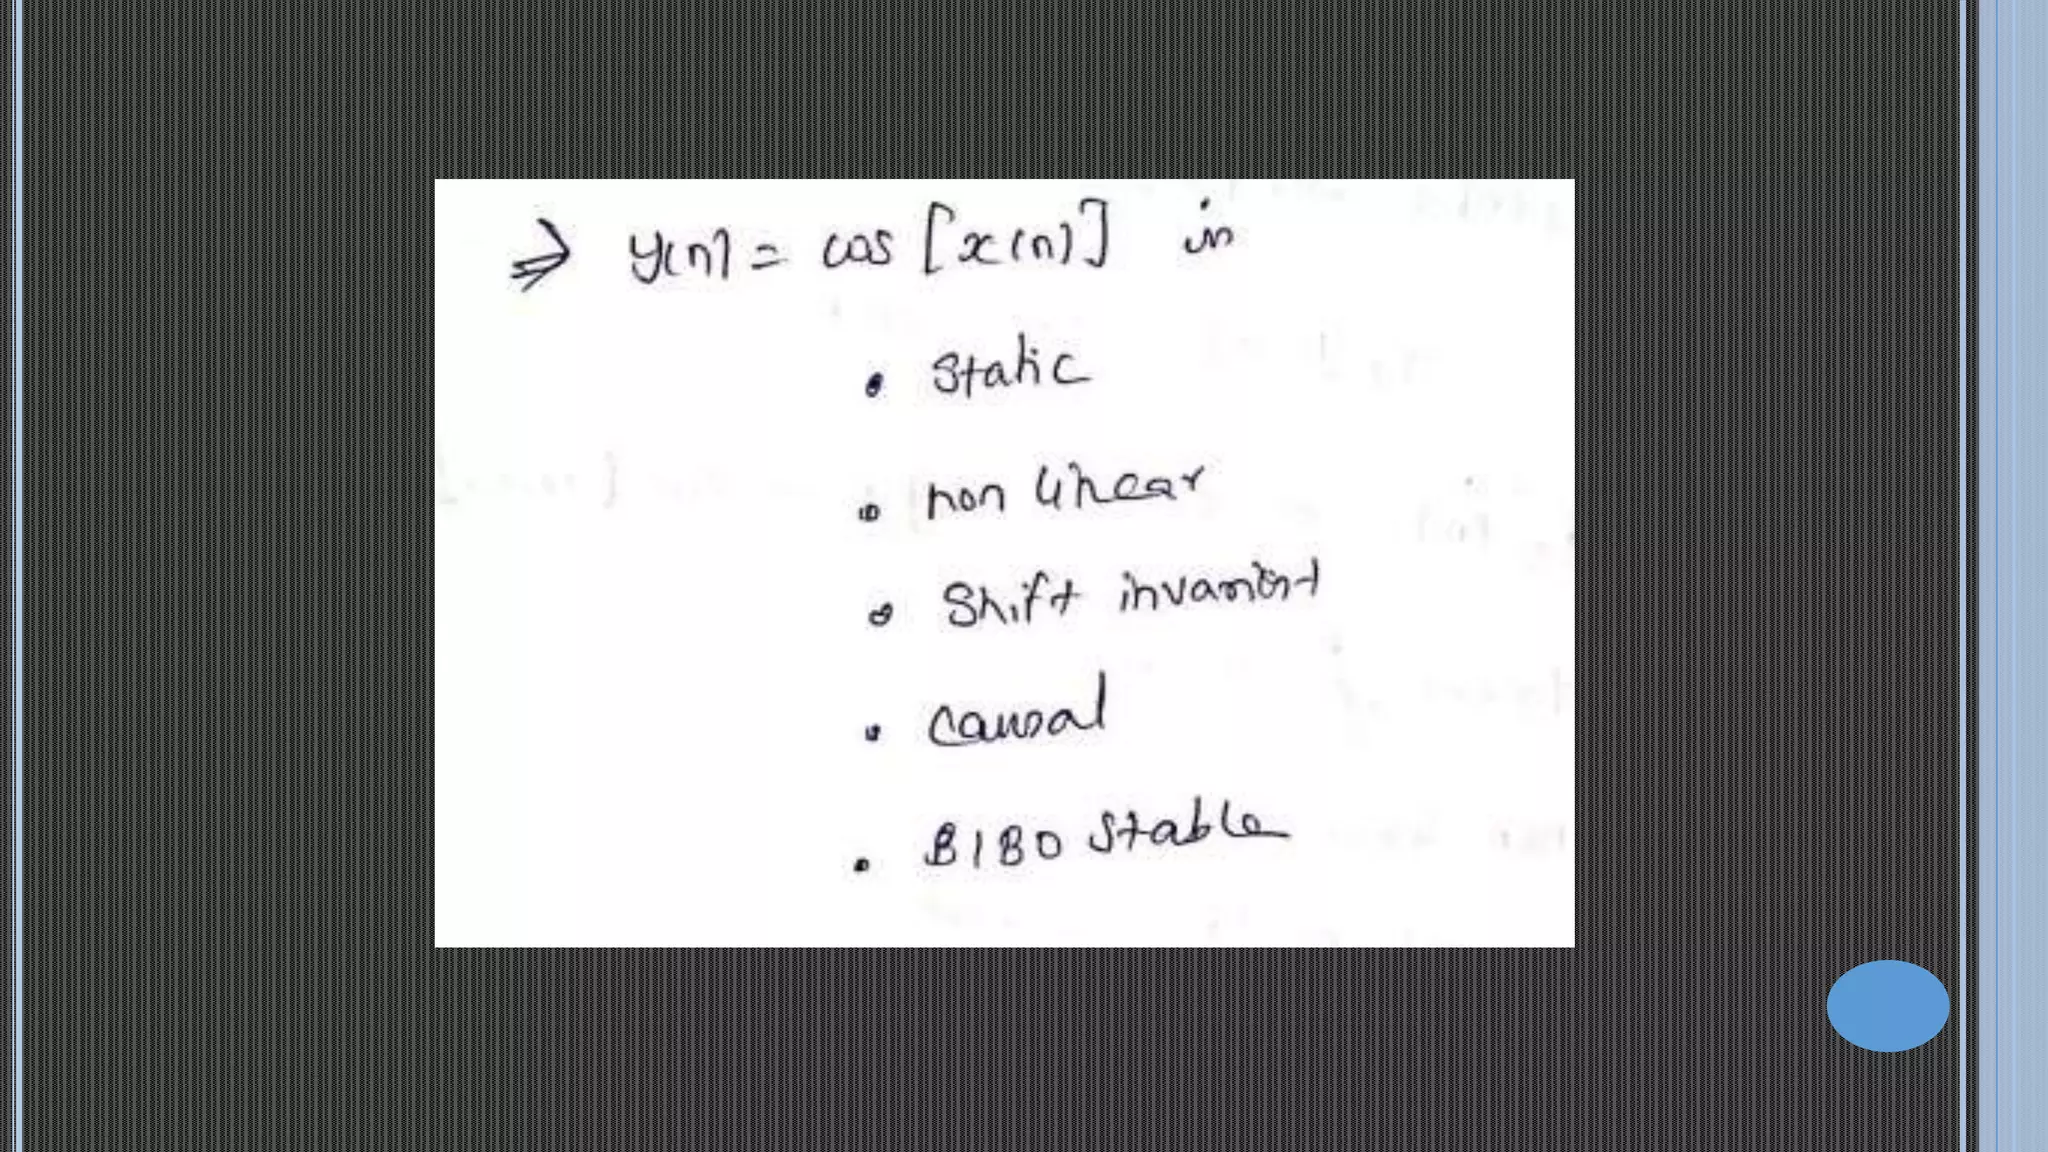 ⇒ y(n) = cos [x(n)] is
• Static
• non linear
• Shift invariant
• Causal
• BIBO Stable